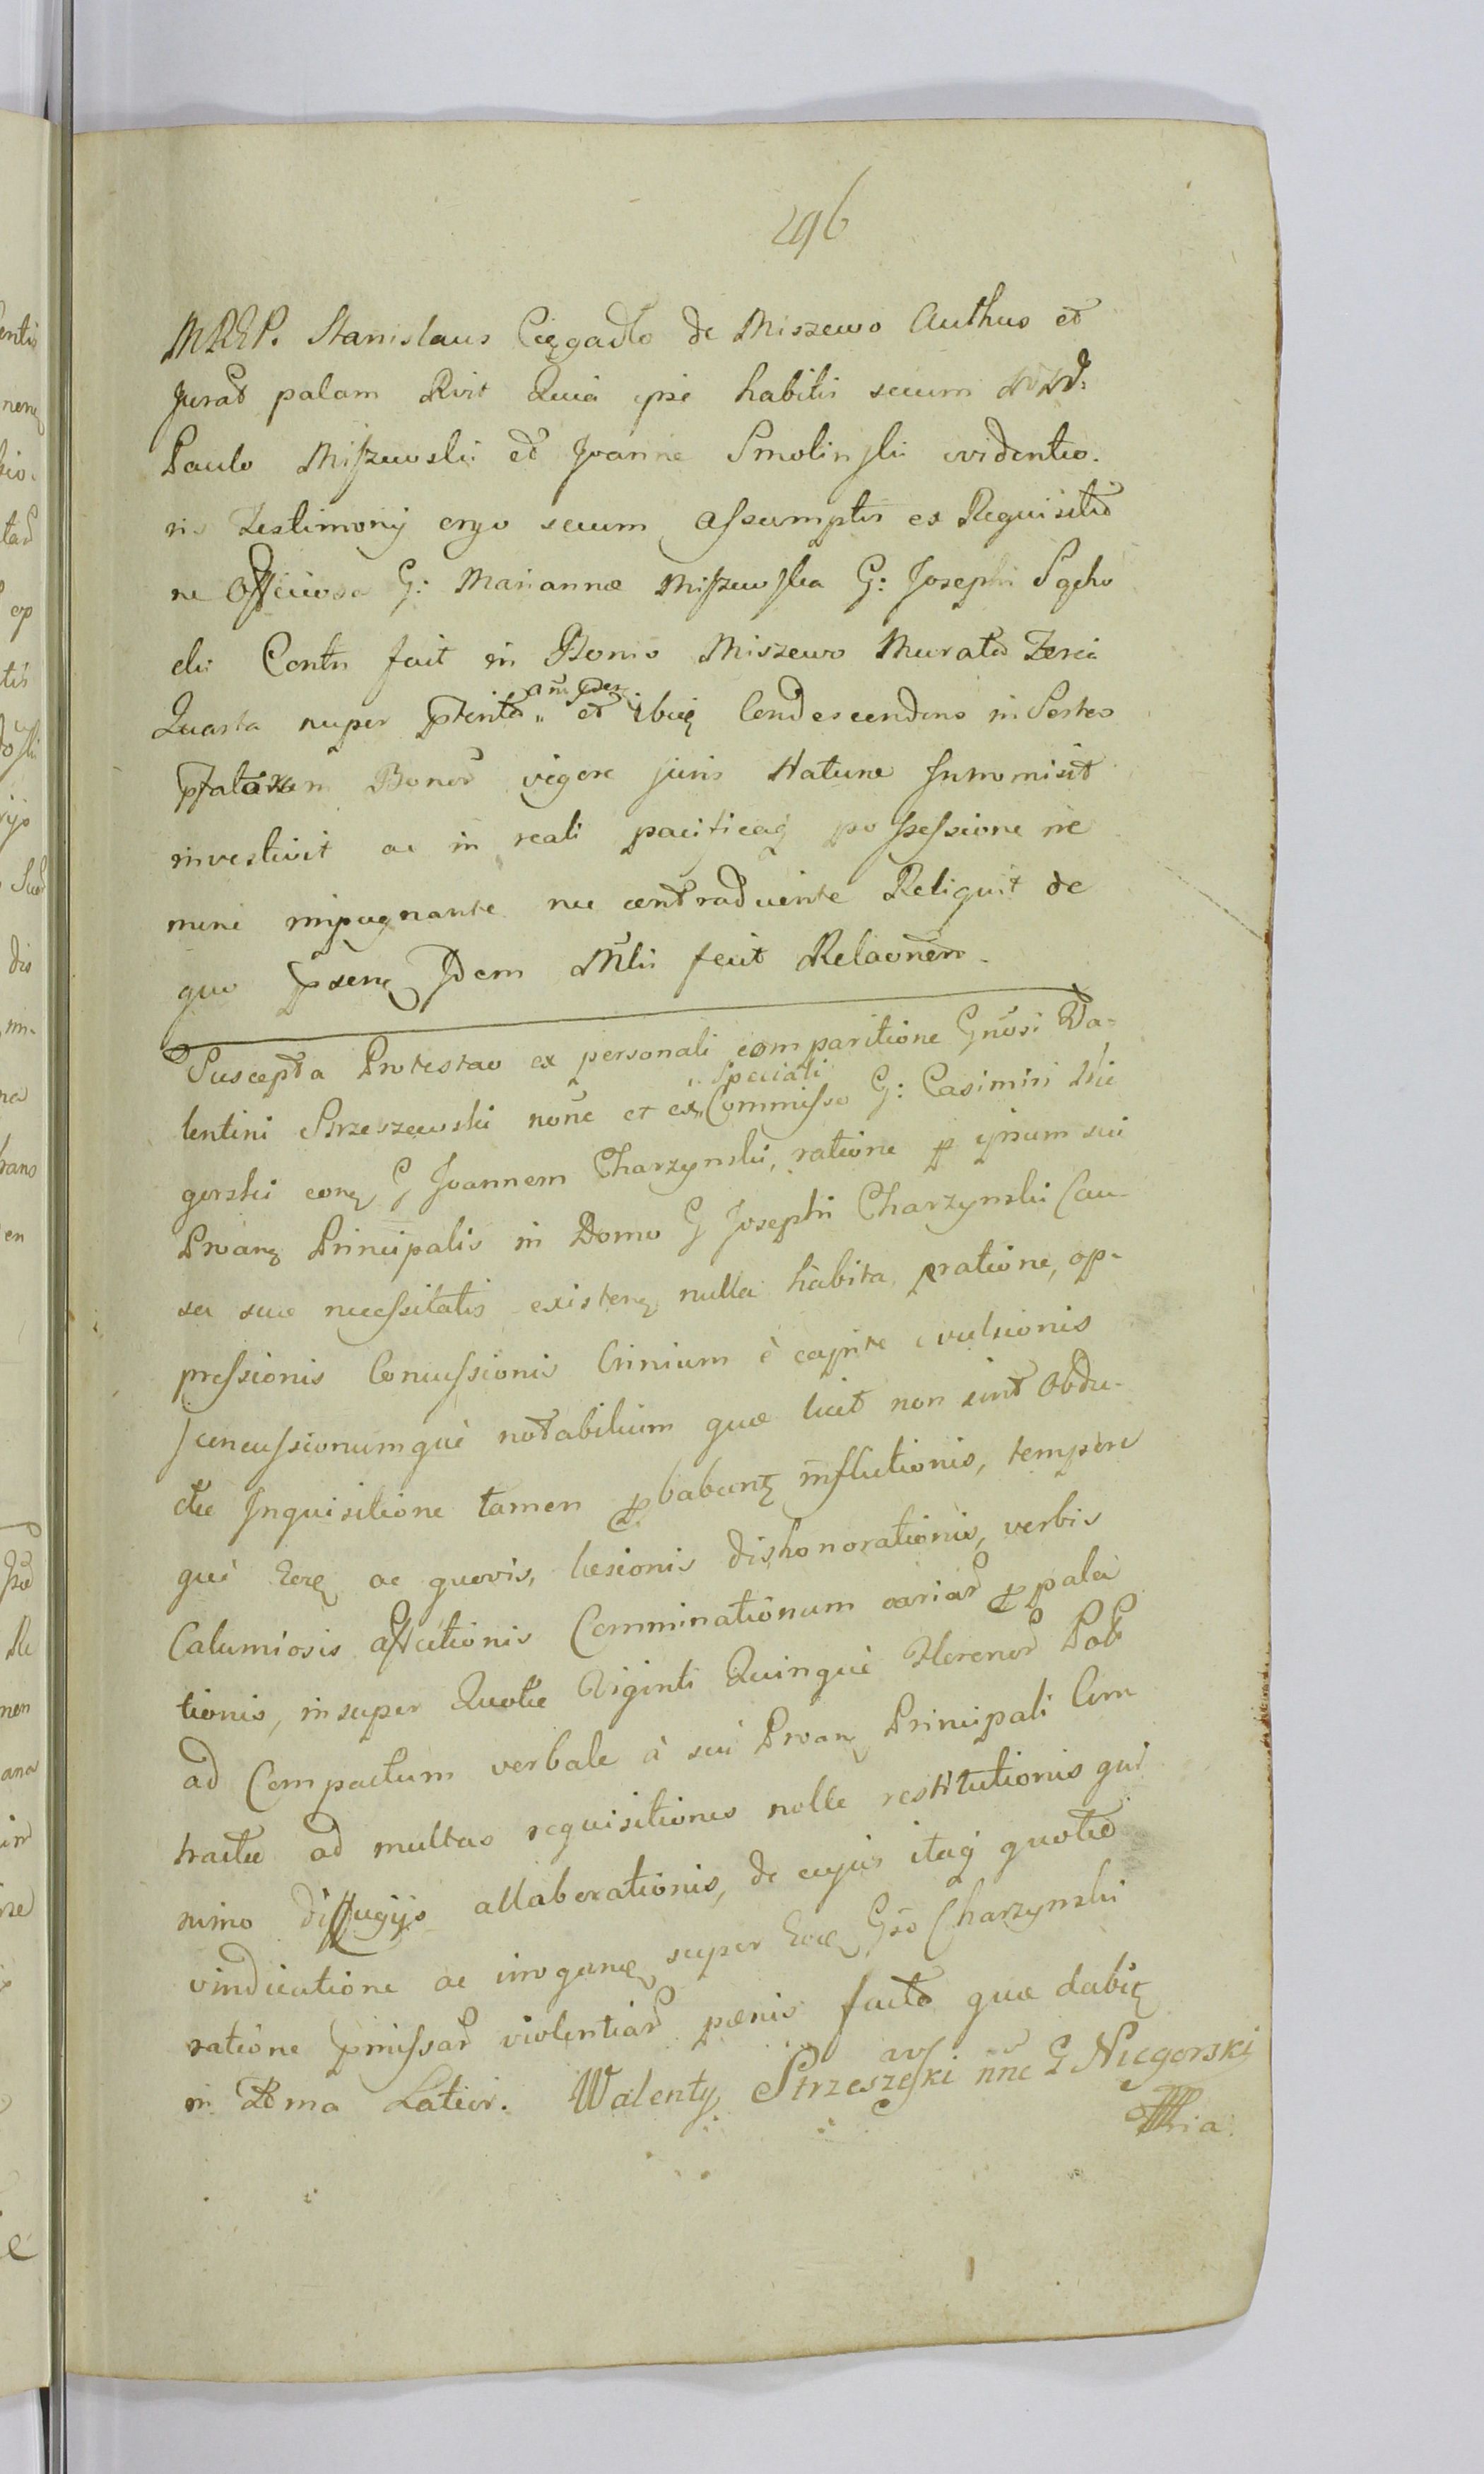 296
MREP. Stanislaus Cięgadło de Miszewo Authus et
Jurat palam Rvit Quia ipse habitis secum NN:
Paulo Miszewski et Joanne Smolinski evidentio.
ris Testimonij ergo secum assumptis ex Requisitio
ne Officiosa G: Mariannæ Miszewska G: Josephi
cki Contu fuit in Bonis Miszewo Murata Feria
Quarta nuper
et ibiq Condescendens in Sortes
Bonor vigore juris Naturæ Intromisit
investivit ac in reali pacificaq possessione ne
mine impugnante nec contradicente Reliquit de
quo Idem Mlis fecit Relaonem.
Suscepta Protestao ex personali comparitione Gnosi Va-
speciali
lentini Strzeszewski none et ex Commisso G: Casimiri Nie
gorski conq G Joannem Charzynski, ratione p ipsum sui
Proanq Principalis in Domo G Josephi Charzynski Cau-
sa suæ necessitatis existenq nulla habita ratione, op-
pressionis Concussionis Crinium è capite evulsionis
concussionumque notabilium quæ licet non sint Obdu-
ctæ Inquisitione tamen pbabunt inflictionis, tempore
que eoq ac quovis, læsionis dishonorationis, verbis
Calumiosis affectionis Comminationum variar ppala
tionis, insuper Quotæ Viginti Quinque Florenor Pol
ad Compactum verbale à sui Proanq Principali Con
tractæ ad multas requisitiones nolle restitutionis qui
nimo diffugijs allaborationis, de cujus itaq quotæ
vindicatione ac irroganq super eoq Gso Charzynski
ratione pmissar violentiar pœnis facta quæ dabit
in Fma Latior. Walenty Strzeszewski nne G Niegorski